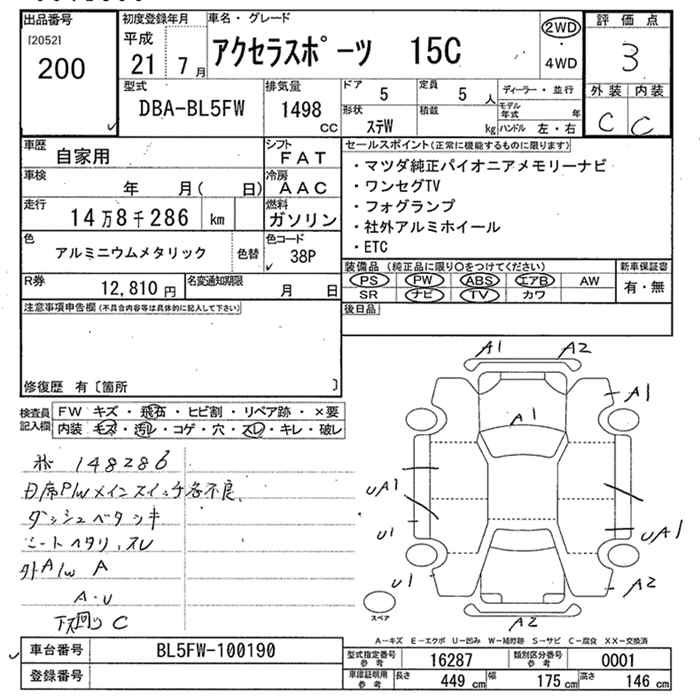 出品番号
[2052]
200
初度登録年月
平成
21 7月
車名・グレード
アクセラスポーツ 15C
2WD
・
4WD
評価点
3
外装 内装
C C
型式
DBA-BL5FW
排気量
1498 cc
ドア 5
定員 5 人
形状 ステW
積載 kg
ディーラー・並行
モデル年式 年
ハンドル 左・右
車歴
自家用
シフト
FAT
車検
年 月( 日)
冷房
AAC
走行
14万8千286 km
燃料
ガソリン
色
アルミニウムメタリック
色替
色コード
38P
R券
12,810 円
名変通知期限
月 日
セールスポイント(正常に機能するものに限ります)
・マツダ純正パイオニアメモリーナビ
・ワンセグTV
・フォグランプ
・社外アルミホイール
・ETC
装備品 (純正品に限り○をつけてください)
PS PW ABS エアB AW
SR ナビ TV カワ
新車保証書
有・無
後日品
注意事項申告欄 (不具合内容等は具体的に記入して下さい)
修復歴 有〔箇所 〕
検査員記入欄
FW キズ・飛石・ヒビ割・リペア跡・×要
内装 キズ・汚レ・コゲ・穴・スレ・キレ・破レ
148286
P/Wメインスイッチ
不良
ダッシュベタツキ
シートヘタリ、スレ
外A/W A
A・U
下廻り C
A1 A2
A1
A1
UA1
U1
UA1
U1
A2
A2
スペア
A－キズ E－エクボ U－凹み W－補修跡 S－サビ C－腐食 XX－交換済
車台番号
BL5FW-100190
登録番号
型式指定番号 参考
16287
類別区分番号 参考
0001
車庫証明用 参考
長さ 449 cm
幅 175 cm
高さ 146 cm